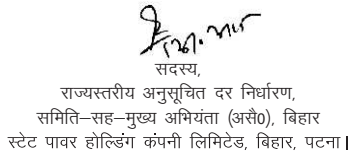 सदस्य,
राज्यस्तरीय अनुसूचित दर निर्धारण,
समिति–सह–मुख्य अभियंता (असै0), बिहार
स्टेट पावर होल्डिंग कंपनी लिमिटेड, बिहार, पटना।